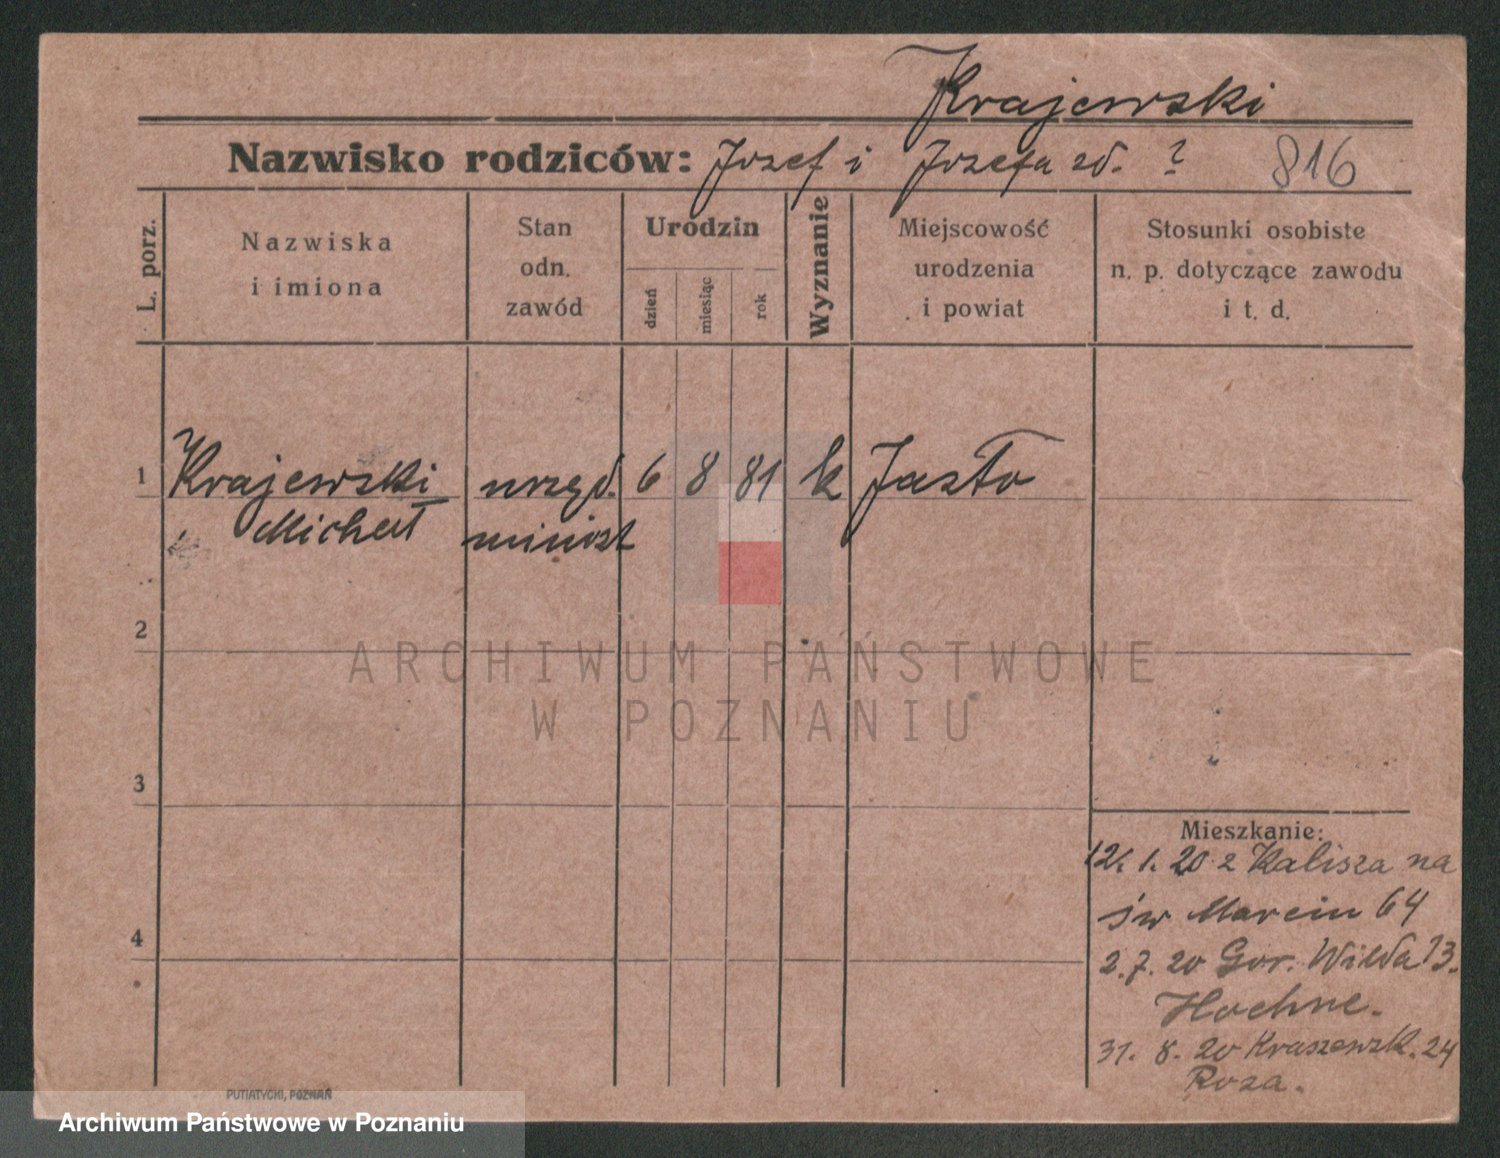 Krajewski
Nazwisko rodziców: Jozef i Jozefa zd. ? 816
L. porz.
Nazwiska
i imiona
Stan
odn.
zawód
Urodzin
dzień
miesiąc
rok
Wyznanie
Miejscowość
urodzenia
i powiat
Stosunki osobiste
n. p. dotyczące zawodu
i t. d.
1 Krajewski urzęd. 6 8 81 k Jasło
Michał minist
2
3
4
Mieszkanie:
12. 1. 20 z Kalisza na
św Marcin 64
2. 7. 20 Gor. Wilda 13.
Hoehne.
31. 8. 20 Kraszewsk. 24
Roza.
PUTIATYCKI, POZNAŃ
ARCHIWUM PAŃSTWOWE
W POZNANIU
Archiwum Państwowe w Poznaniu